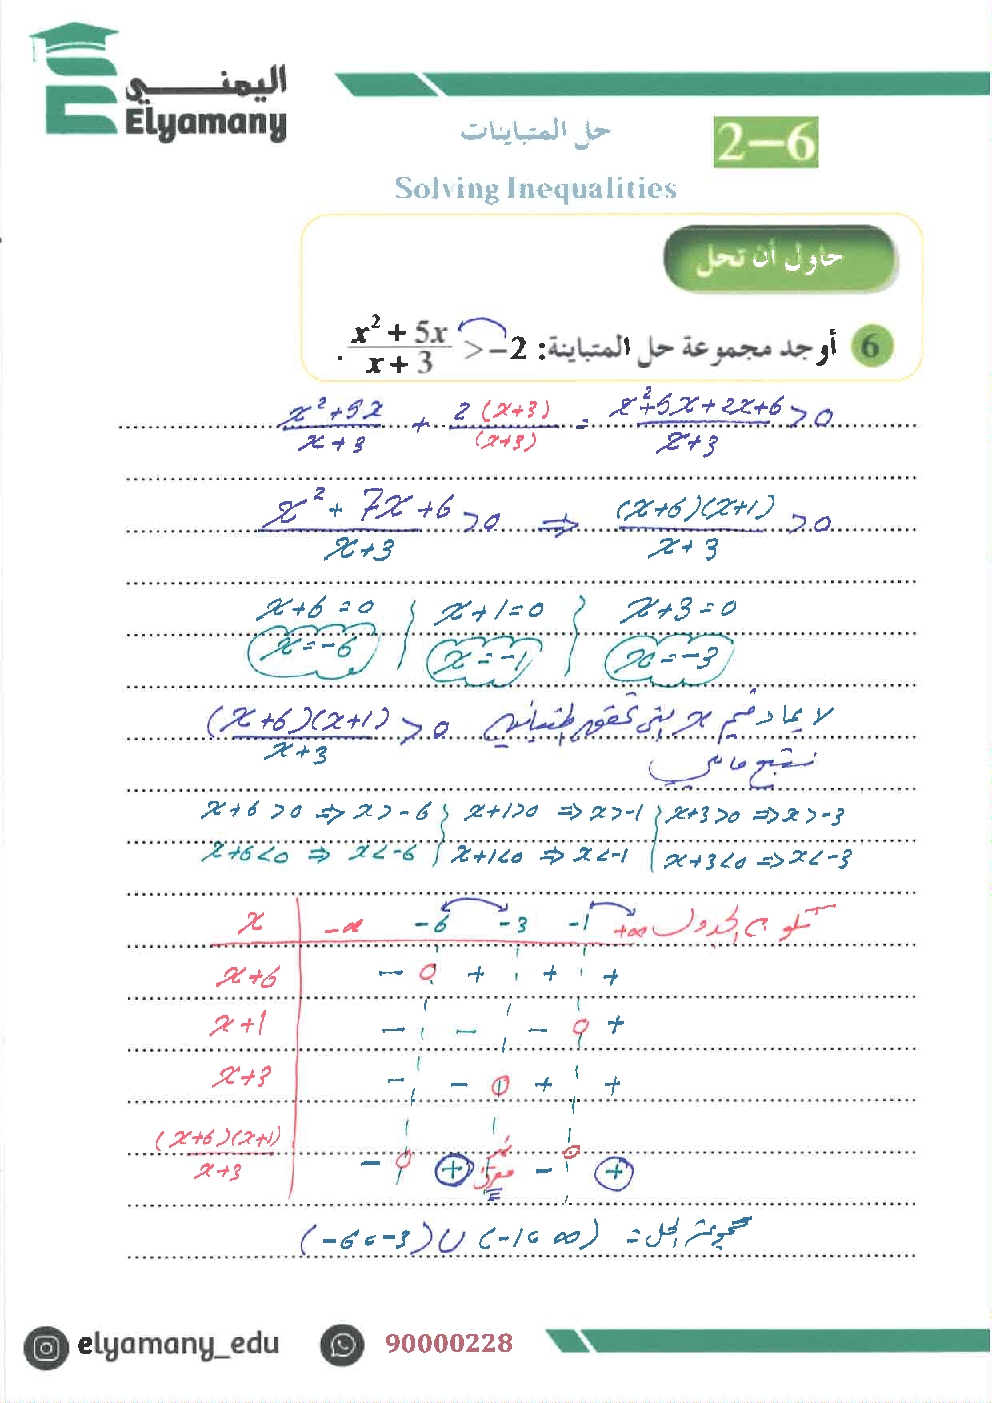 اليمني
Elyamany
حل المتباينات
2-6
Solving Inequalities
حاول أن تحل
6 أوجد مجموعة حل المتباينة: (x² + 5x)/(x + 3) > -2 .
(x²+5x)/(x+3) + 2(x+3)/(x+3) = (x²+5x+2x+6)/(x+3) > 0
(x²+7x+6)/(x+3) > 0 ⇒ (x+6)(x+1)/(x+3) > 0
x+6=0 } x+1=0 } x+3=0
x=-6 } x=-1 } x=-3
(x+6)(x+1)/(x+3) > 0 لايجاد قيم x التي تحقق المتباينة
نتبع مايلي
x+6>0 ⇒ x>-6 } x+1>0 ⇒ x>-1 } x+3>0 ⇒ x>-3
x+6<0 ⇒ x<-6 } x+1<0 ⇒ x<-1 } x+3<0 ⇒ x<-3
x -∞ -6 -3 -1 +∞ الجدول
x+6 - 0 + + +
x+1 - - - 0 +
x+3 - - 0 + +
(x+6)(x+1)/(x+3) - 0 + غير معرف - 0 +
مجموعة الحل = (-6، -3) ∪ (-1، ∞)
elyamany_edu 90000228